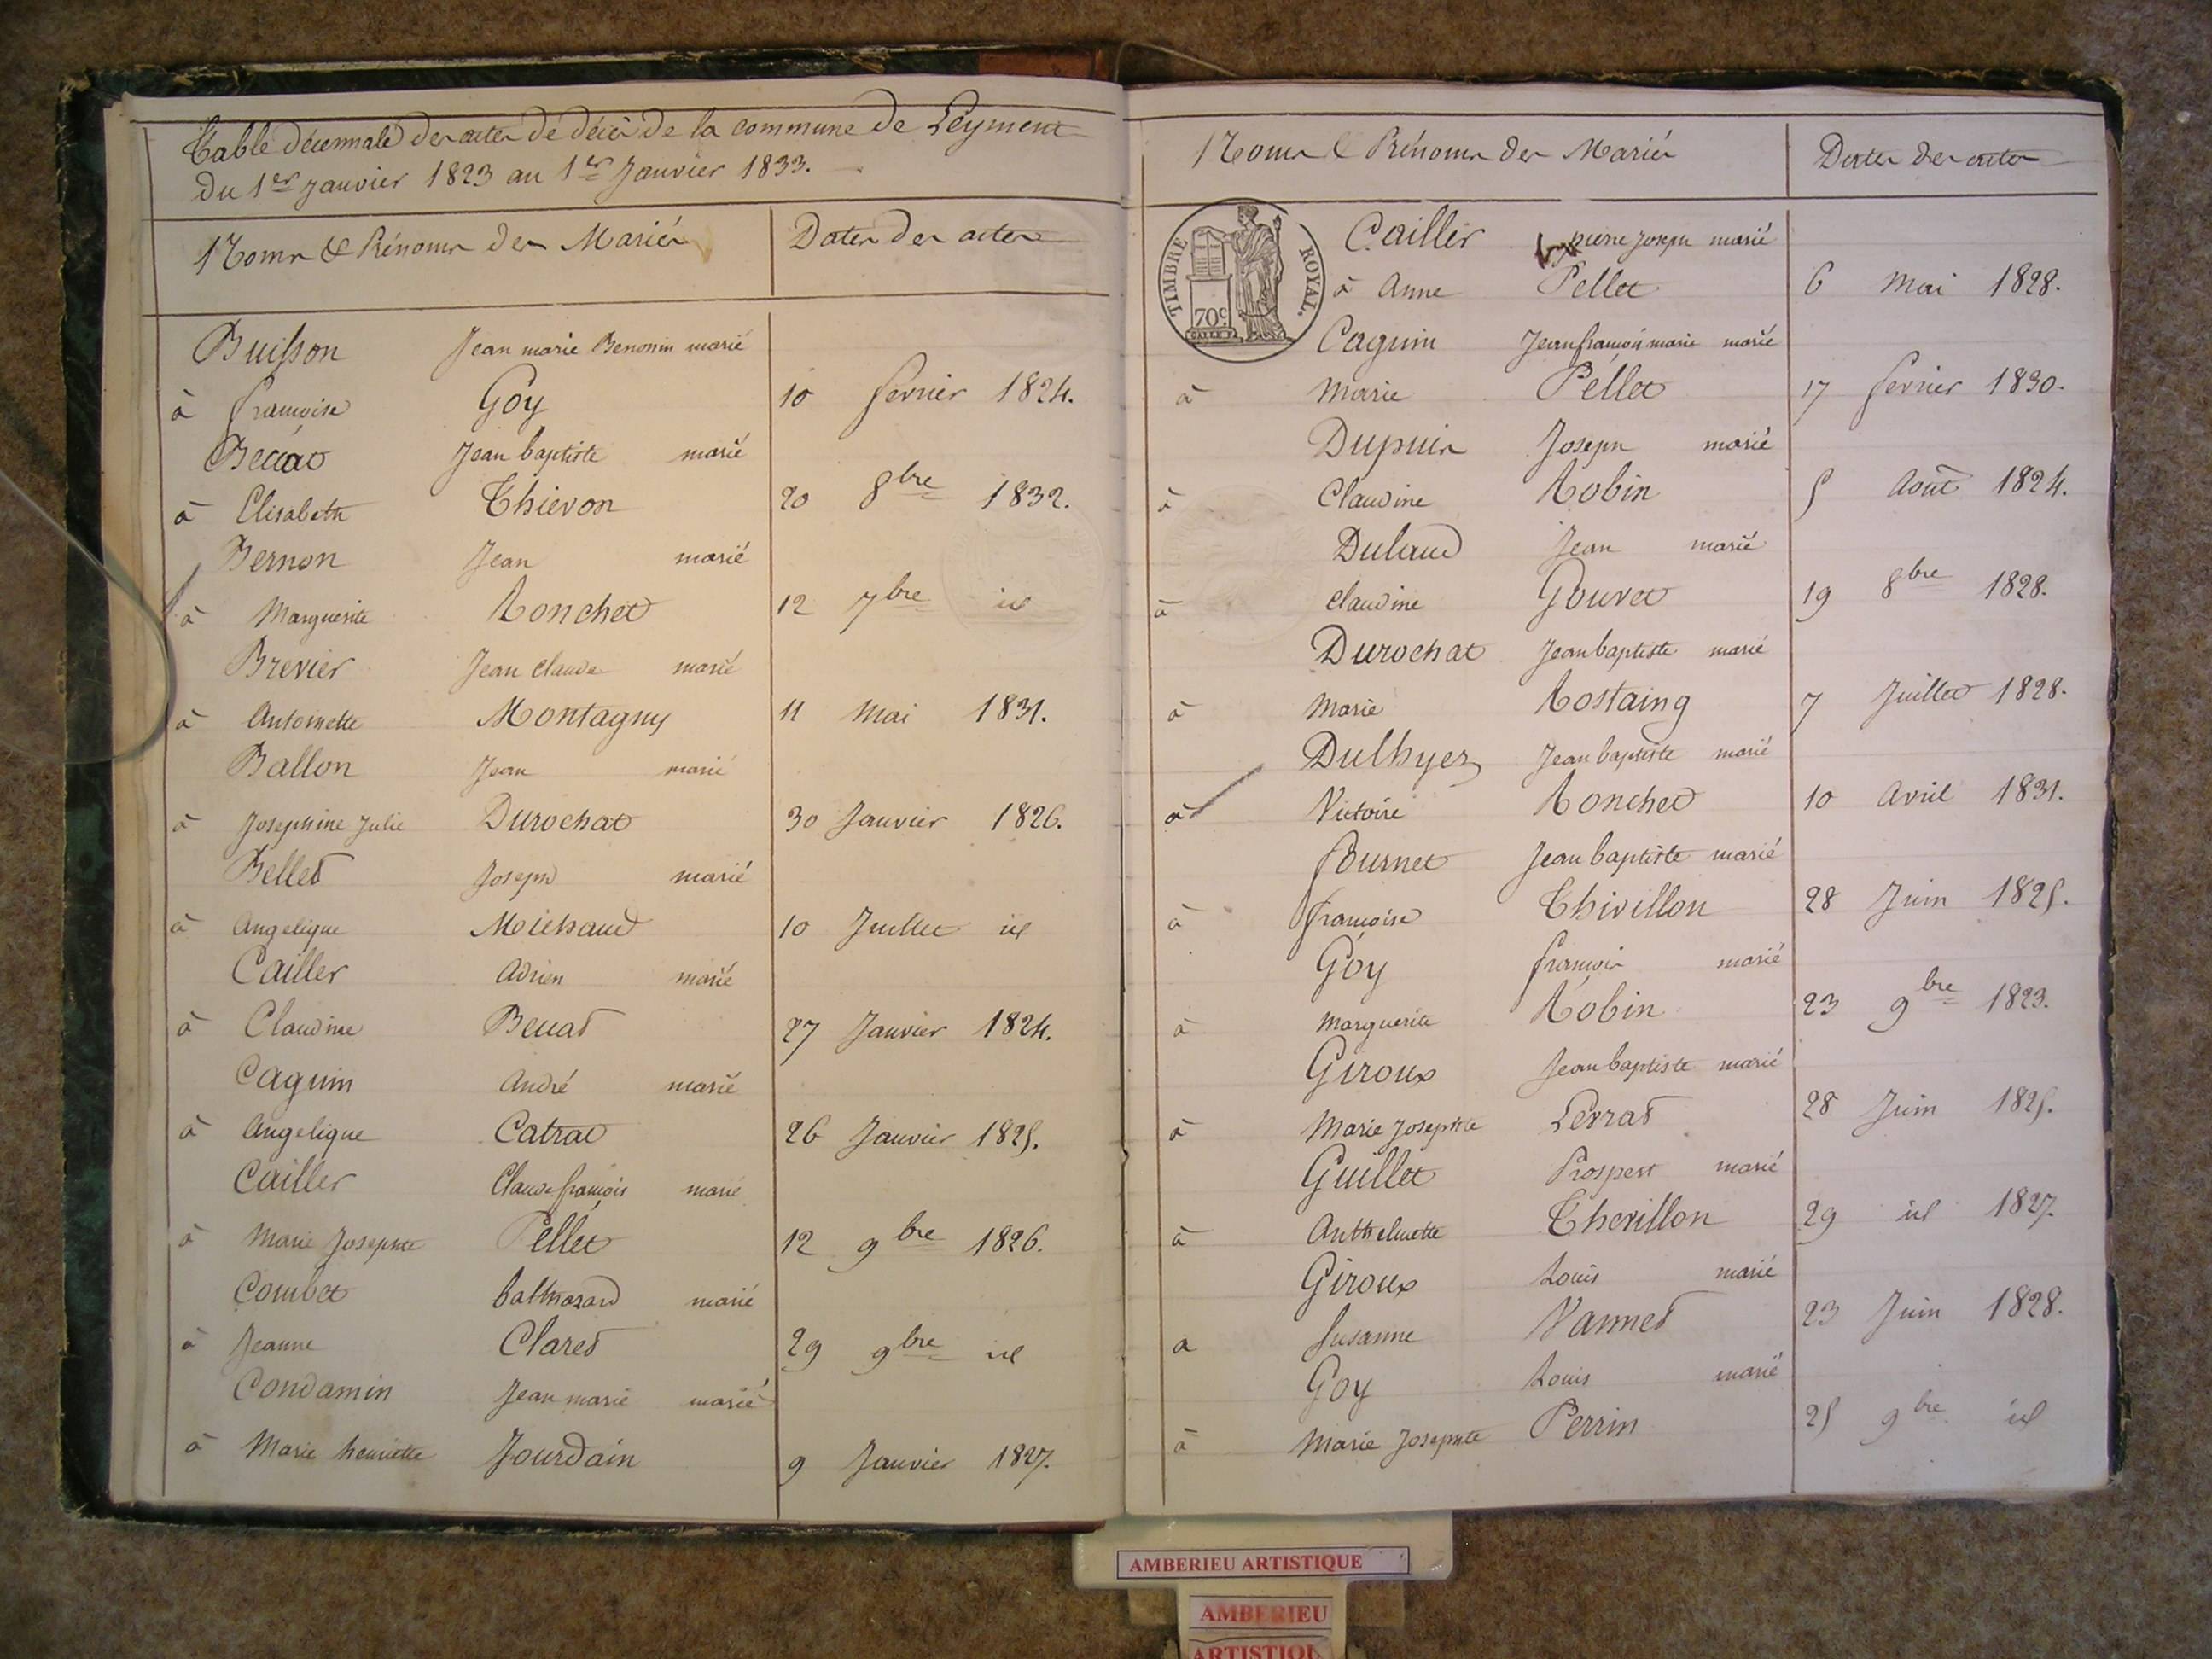 Table décennale des actes de décès de la commune de Leyment
Du 1er Janvier 1823 au 1er Janvier 1833.
Noms & Prénoms des Mariés Dates des actes
Buisson Jean marie Benonin marié
à françoise Goy 10 fevrier 1824.
Beccat Jean baptiste marié
à Elisabeth Thievon 20 8bre 1832.
Bernon Jean marié
à Marguerite Ronchet 12 7bre id
Brevier Jean Claude marié
à Antoinette Montagny 11 Mai 1831.
Ballon Jean marié
à Josephine Julie Durochat 30 Janvier 1826.
Bellet Joseph marié
à Angelique Michaud 10 Juillet id
Cailler Adrien marié
à Claudine Beccat 27 Janvier 1824.
Caguin André marié
à Angelique Catrat 26 Janvier 1825.
Cailler Claude françois marié
à Marie Josephte Pellet 12 9bre 1826.
Combet balthazard marié
à Jeanne Claret 29 9bre id
Condamin Jean marie marié
à Marie henriette Jourdain 9 Janvier 1827.
Noms & Prénoms des Mariés Dates des actes
TIMBRE ROYAL.
70c
Cailler pierre Joseph marié
à Anne Pellet 6 Mai 1828.
Caguin Jean françois marie marié
à Marie Pellet 17 fevrier 1830.
Dupuis Joseph marié
à Claudine Robin 5 Août 1824.
Dulaud Jean marié
à Claudine Gouvet 19 8bre 1828.
Durochat Jean baptiste marié
à Marie Rostaing 7 Juillet 1828.
Dulhyer Jean baptiste marié
à Victoire Ronchet 10 Avril 1831.
fournet Jean baptiste marié
à françoise Thivillon 28 Juin 1825.
Goy françois marié
à Marguerite Robin 23 9bre 1823.
Giroux Jean baptiste marié
à Marie Josephte Perrat 28 Juin 1825.
Guillet Prosper marié
à Anthelmette Thevillon 29 id 1827.
Giroux Louis marié
a Susanne Vannet 23 Juin 1828.
Goy Louis marié
à Marie Josephte Perrin 25 9bre id
AMBERIEU ARTISTIQUE
AMBERIEU
ARTISTIQU